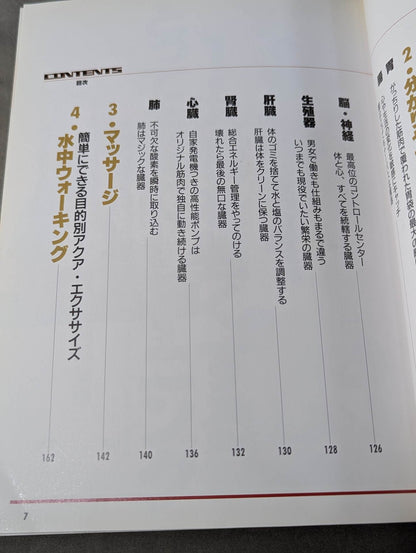 2・分
胃
がっちりした筋肉で覆われた胃袋の最大の
CONTENTS
目次
脳・神経
最高位のコントロールセンター
体と心、すべてを統轄する臓器
126
生殖器
男女で働きも仕組みもまるで違う
いつまでも現役でいたい繁栄の臓器
128
肝臓
体のゴミを捨てて水と塩のバランスを調整する
肝臓は体をクリーンに保つ臓器
130
腎臓
総合エネルギー管理をやってのける
壊れたら最後の無口な臓器
132
心臓
自家発電機つきの高性能ポンプは
オリジナル筋肉で独自に動き続ける臓器
136
肺
不可欠な酸素を瞬時に取り込む
肺はマジックな臓器
140
3・マッサージ
142
簡単にできる目的別アクア・エクササイズ
4・水中ウォーキング
162
7